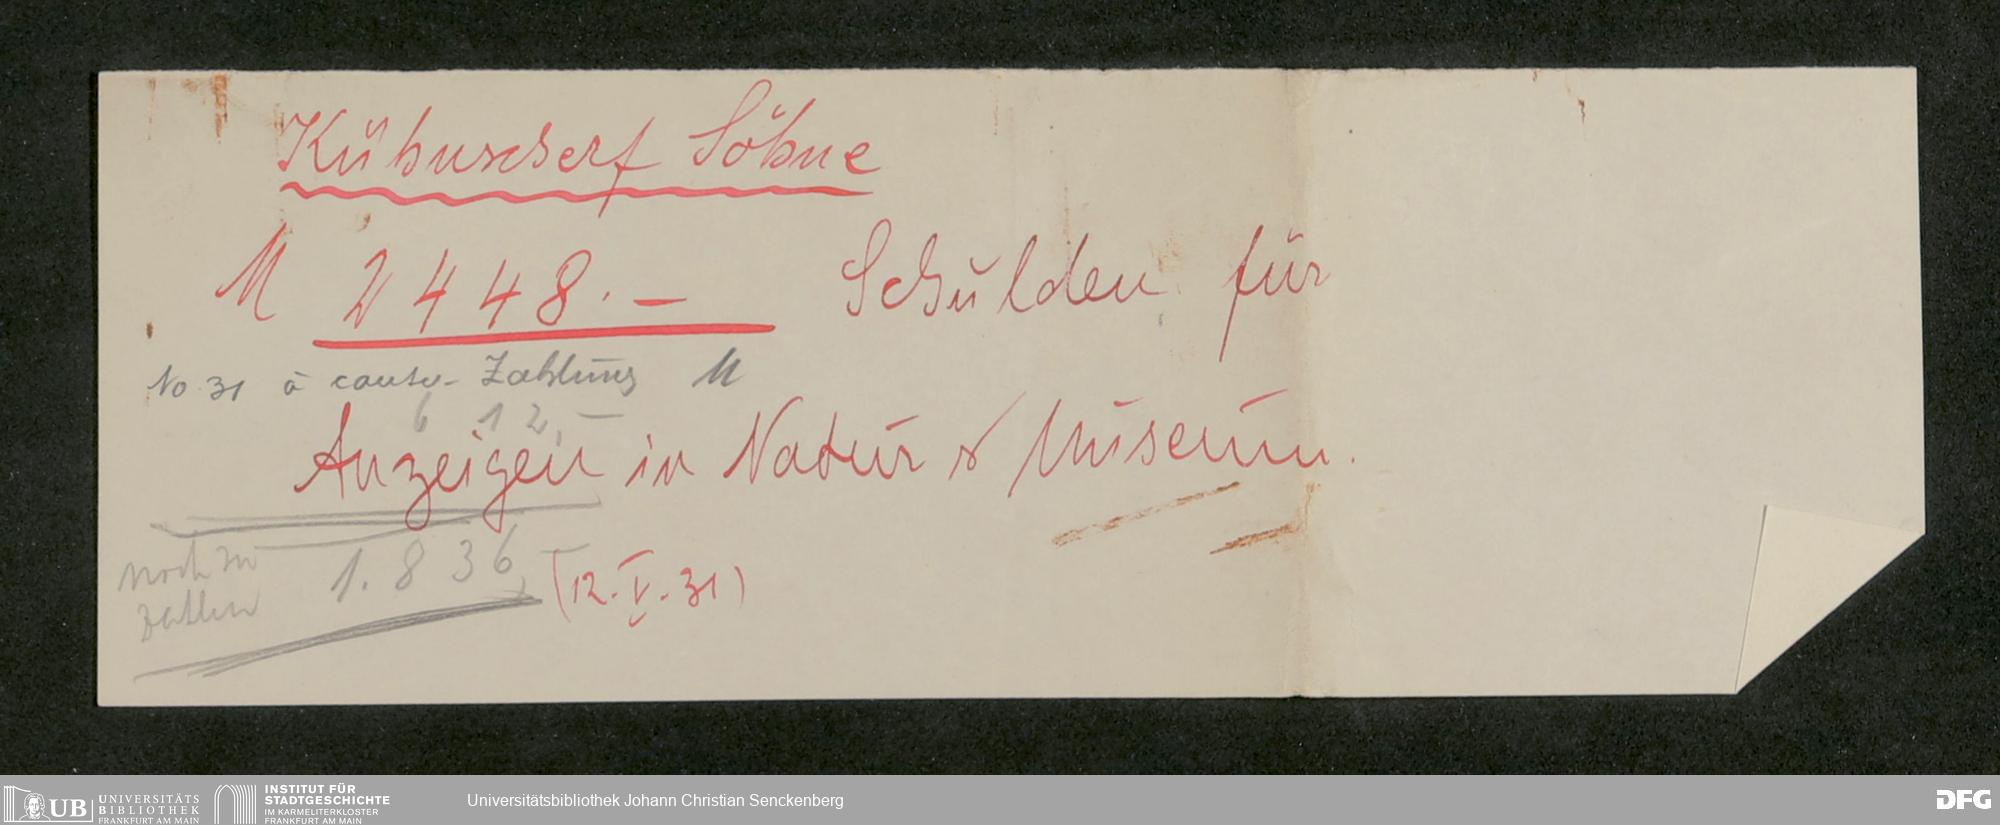 Kühnscherf Söhne
M 2448.— Schulden für
No. 31 à conto-Zahlung M
612,—
Anzeigen in Natur & Museum.
noch zu
zahlen 1.836,—
(12.V.31)
UB UNIVERSITÄTS
BIBLIOTHEK
FRANKFURT AM MAIN
INSTITUT FÜR
STADTGESCHICHTE
IM KARMELITERKLOSTER
FRANKFURT AM MAIN
Universitätsbibliothek Johann Christian Senckenberg
DFG